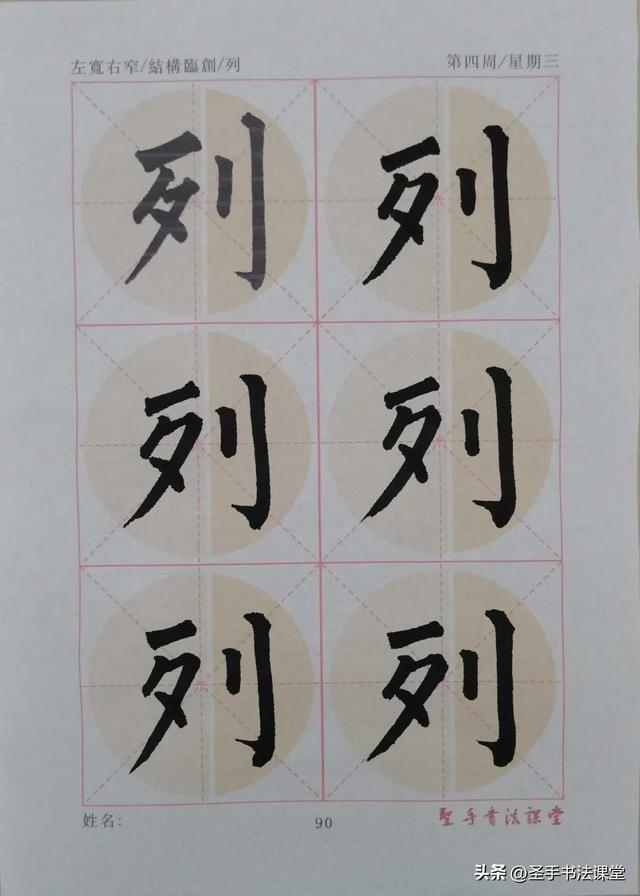 左寬右窄/結構臨創/列
第四周/星期三
列 列
列 列
列 列
姓名:
90
聖手書法課堂
头条 @圣手书法课堂